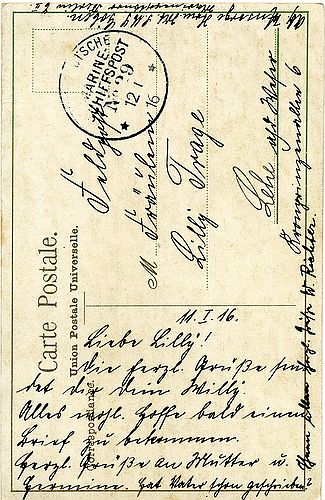 Feldpost
DEUTSCHE
MARINE-
SCHIFFSPOST
No 29
12 1 16
Fräulein
Lilly Trage
Lehe a/d Weser
Kronprinzenallee 6
Carte Postale.
Union Postale Universelle.
Correspondance.
11. I. 16.
Liebe Lilly!
Die herzl. Grüße sen
det dir dein Willy.
Alles wohl. Hoffe bald einen
Brief zu bekommen.
Herzl. Grüße an Mutter u.
Hermine. Hat Vater schon geschrieben?